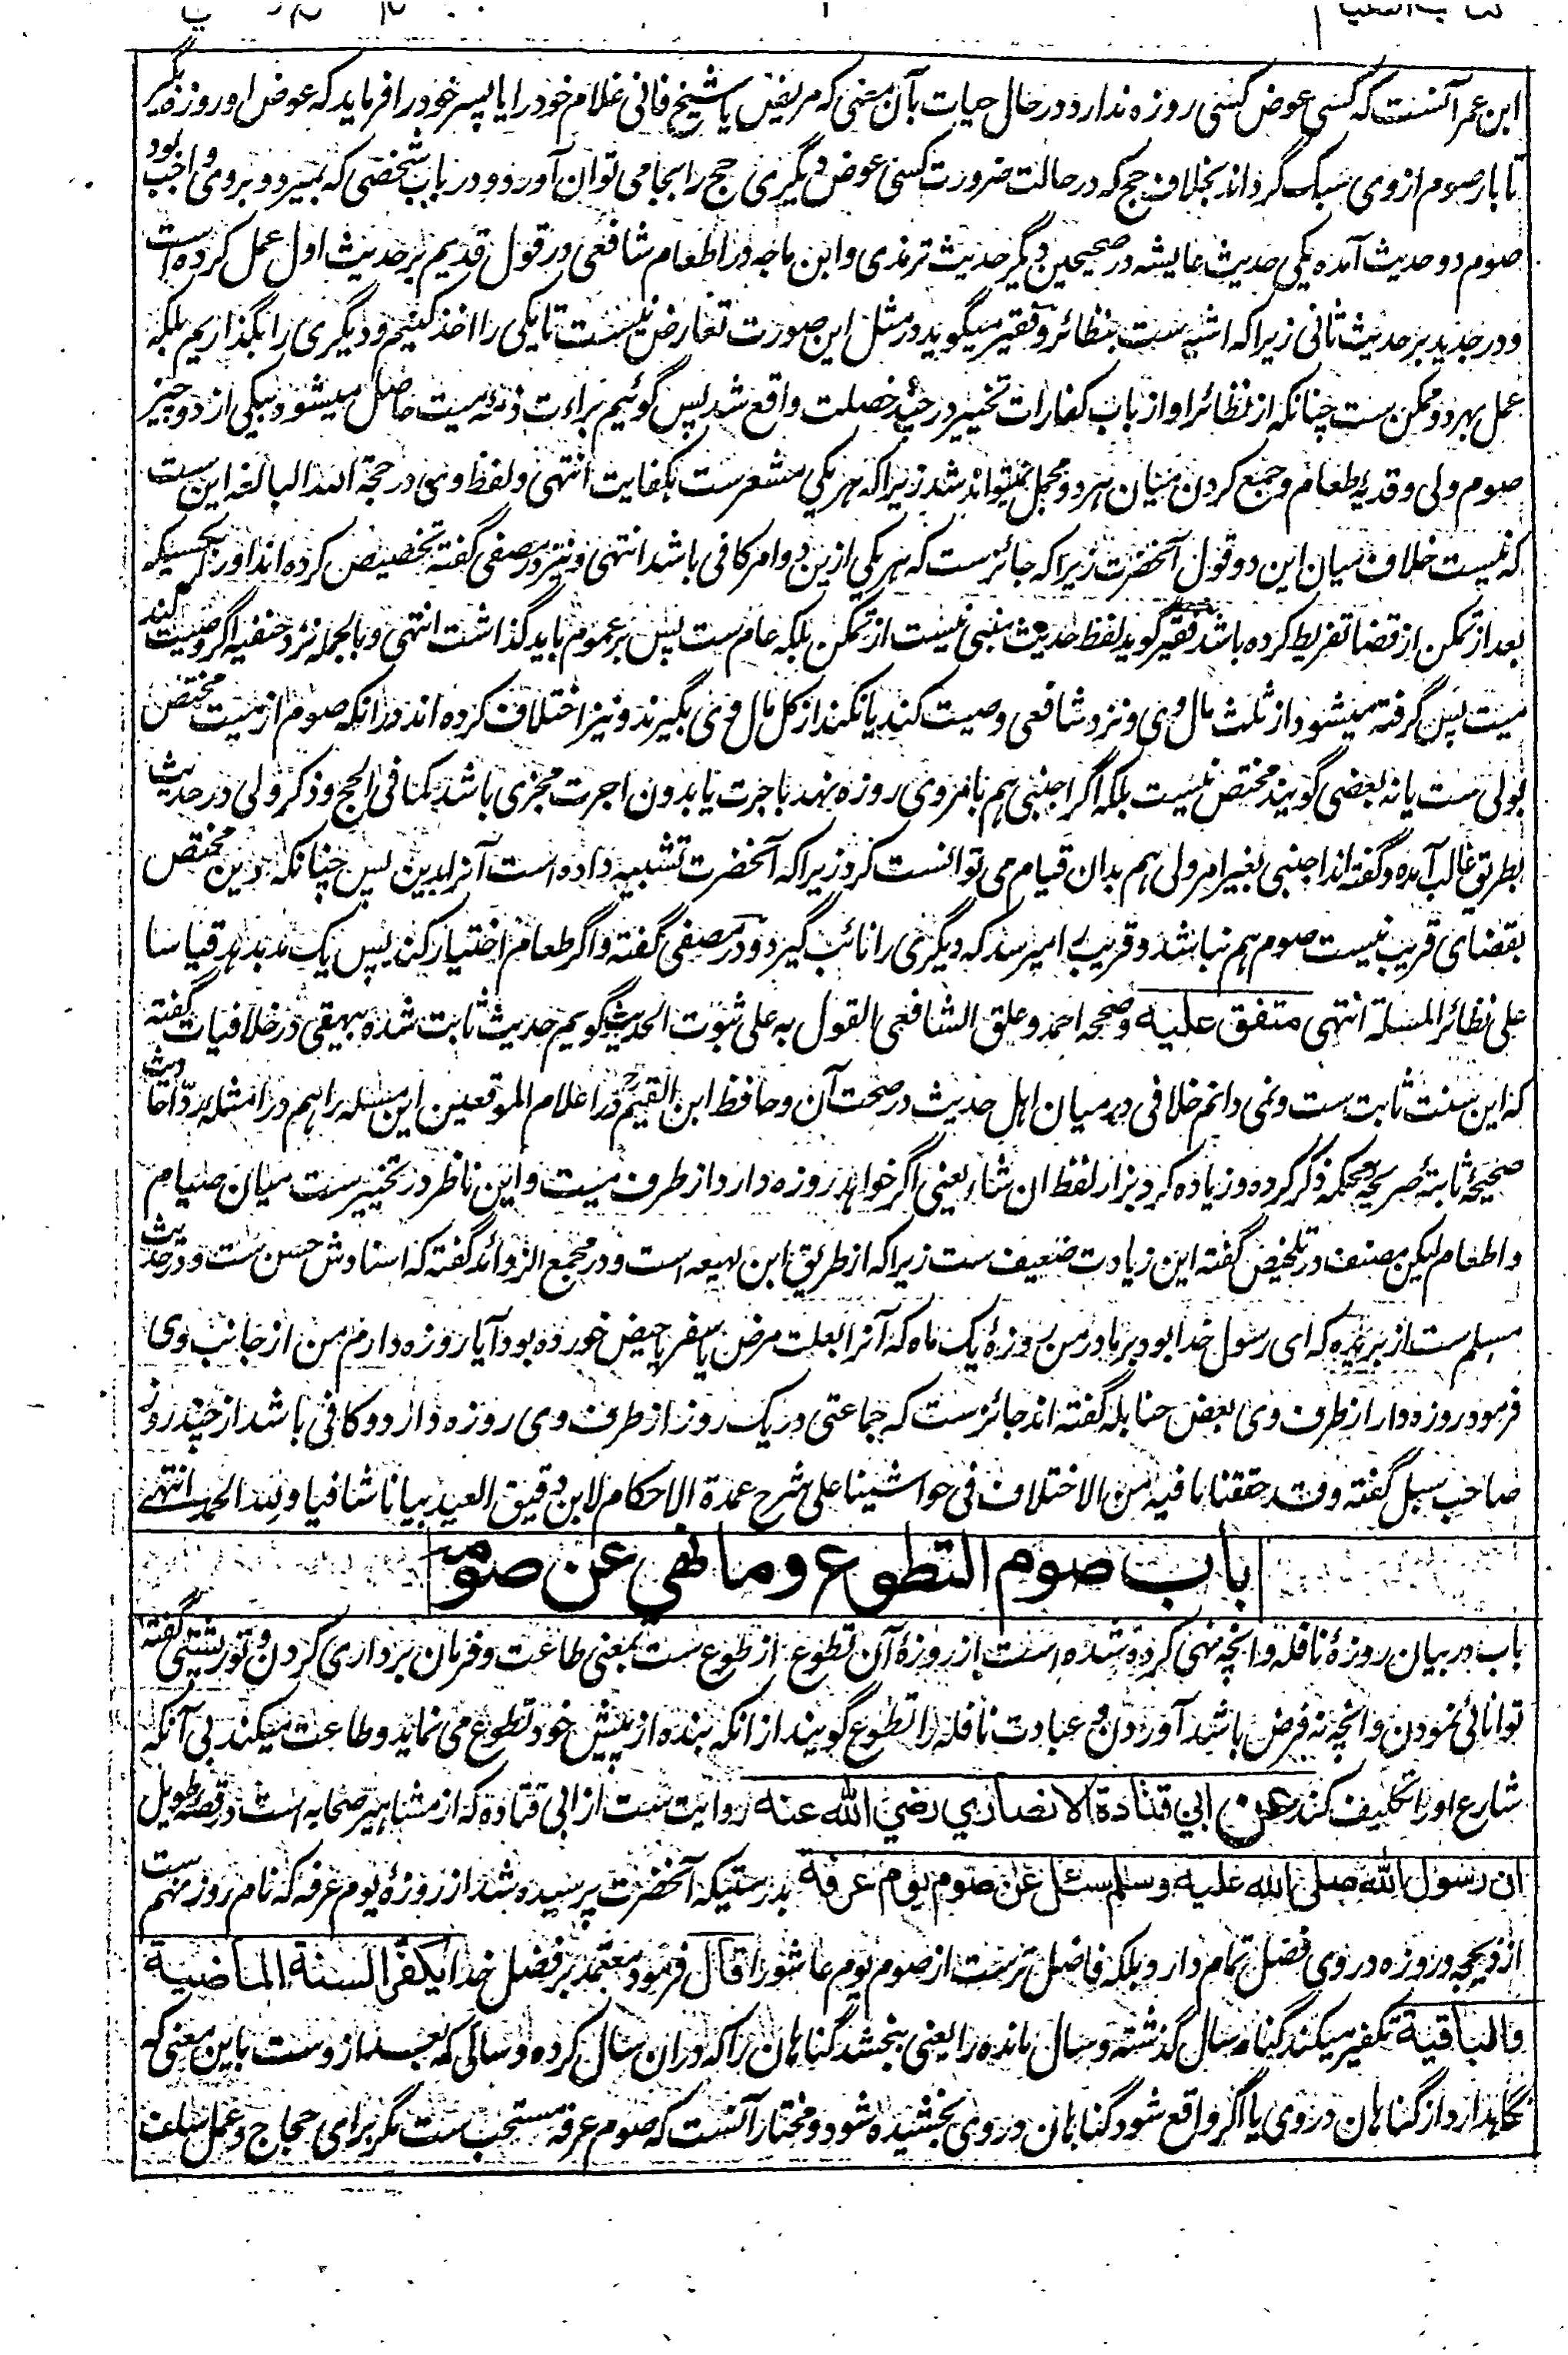 ابن عمر آنست که کسی عوض کسی روزه ندارد در حال حیات بآن معنی که مریض یا شیخ فانی غلام خود را یا پسر خود را فرماید که عوض او روزه بگیر
تا بار صوم از وی سبک گرداند بخلاف حج که در حالت ضرورت کسی عوض دیگری حج را بجا می توان آورد و در باب شخصی که بمیرد و بر وی واجب بود
صوم دو حدیث آمده یکی حدیث عایشه در صحیحین دیگر حدیث ترمذی و ابن ماجه در اطعام شافعی در قول قدیم بر حدیث اول عمل کرده است
و در جدید بر حدیث ثانی زیرا که اشبه ست بنظائر و فقیر میگوید در مثل این صورت تعارض نیست تا یکی را اخذ کنیم و دیگری را بگذاریم بلکه
عمل بهر دو ممکن ست چنانکه از نظائر او از باب کفارات تخییر در چند خصلت واقع شد پس گوئیم براءت ذمهٔ میت حاصل میشود بیکی از دو چیز
صوم ولی و فدیهٔ طعام و جمع کردن میان هر دو محمل نمیتواند شد زیرا که هر یکی مشعرست بکفایت انتهی و لفظ وی در حجة الله البالغه این ست
که نیست خلاف میان این دو قول آنحضرت زیرا که جائزست که هر یکی ازین دو امر کافی باشد انتهی و نیز در مصفی گفته تخصیص کرده اند اورا بکسیکه
بعد از تمکن از قضا تفریط کرده باشد فقیر گوید لفظ حدیث منبی نیست از تمکن بلکه عام ست پس بر عموم باید گذاشت انتهی و بالجمله نزد حنفیه اگر وصیت کند
میت پس گرفته میشود از ثلث مال وی و نزد شافعی وصیت کند یا نکند از کل مال وی بگیرند و نیز اختلاف کرده اند در آنکه صوم از میت مختص
بولی ست یا نه بعضی گویند مختص نیست بلکه اگر اجنبی هم بامر وی روزه نهد باجرت یا بدون اجرت مجزی باشد کما فی الحج و ذکر ولی در حدیث
بطریق غالب آمده و گفته اند اجنبی بغیر امر ولی هم بدان قیام می توانست کرد زیرا که آنحضرت تشبیه داده است آنرا بدین پس چنانکه دین مختص
بقضای قریب نیست صوم هم نباشد و قریب را میرسد که دیگری را نائب گیرد و در مصفی گفته و اگر طعام اختیار کند پس یک مد بدهد قیاسا
علی نظائر المسئلة انتهی متفق علیه و صححه احمد و علق الشافعی القول به علی ثبوت الحدیث گویم حدیث ثابت شده بیهقی در خلافیات گفته
که این سنت ثابت ست و نمی دانم خلافی در میان اهل حدیث در صحت آن و حافظ ابن القیم در اعلام الموقعین این مسئله را هم در امثلهٔ رد احادیث
صحیحهٔ ثابتهٔ صریحهٔ محکمه ذکر کرده و زیاده کرد بزار لفظ ان شاء یعنی اگر خواهد روزه دارد از طرف میت و این ناظر در تخییرست میان صیام
و اطعام لیکن مصنف در تلخیص گفته این زیادت ضعیف ست زیرا که از طریق ابن لهیعه است و در مجمع الزوائد گفته که اسنادش حسن ست و در حدیث
مسلم ست از بریده که ای رسول خدا بود بر مادر من روزهٔ یک ماه که آنرا بعلت مرض یا سفر یا حیض خورده بود آیا روزه دارم من از جانب وی
فرمود روزه دار از طرف وی بعض حنابله گفته اند جائزست که جماعتی در یک روز از طرف وی روزه دارد و کافی باشد از چند روز
صاحب سبل گفته و قد حققنا ما فیه من الاختلاف فی حواشینا علی شرح عمدة الاحکام لابن دقیق العید بیانا شافیا و لله الحمد انتهی
باب صوم التطوع وما نهي عن صومه
باب در بیان روزهٔ نافله و آنچه نهی کرده شده است از روزهٔ آن تطوع از طوع ست بمعنی طاعت و فرمان برداری کردن و تورپشتی گفته
توانائی نمودن و آنچه نه فرض باشد آوردن و عبادت نافله را تطوع گویند از آنکه بنده از پیش خود تطوع می نماید و طاعت میکند بی آنکه
شارع او را تکلیف کند عن ابي قتادة الانصاري رضي الله عنه روایت ست از ابی قتاده که از مشاهیر صحابه است در قصهٔ طویل
ان رسول الله صلى الله عليه وسلم سئل عن صوم يوم عرفة بدرستیکه آنحضرت پرسیده شد از روزهٔ یوم عرفه که نام روز نهم ست
از ذیحجه و روزه در وی فضل تمام دارد بلکه فاضل ترست از صوم یوم عاشورا قال فرمود معتمد بر فضل خدا يكفر السنة الماضية
والباقية تکفیر میکند گناه سال گذشته و سال مانده را یعنی ببخشد گناهان را که در ان سال کرده و سالی که بعد از وست باین معنی که
نگاهدارد از گناهان در وی یا اگر واقع شود گناهان در وی بخشیده شود و مختار آنست که صوم عرفه مستحب ست مگر برای حجاج و عمل سلف